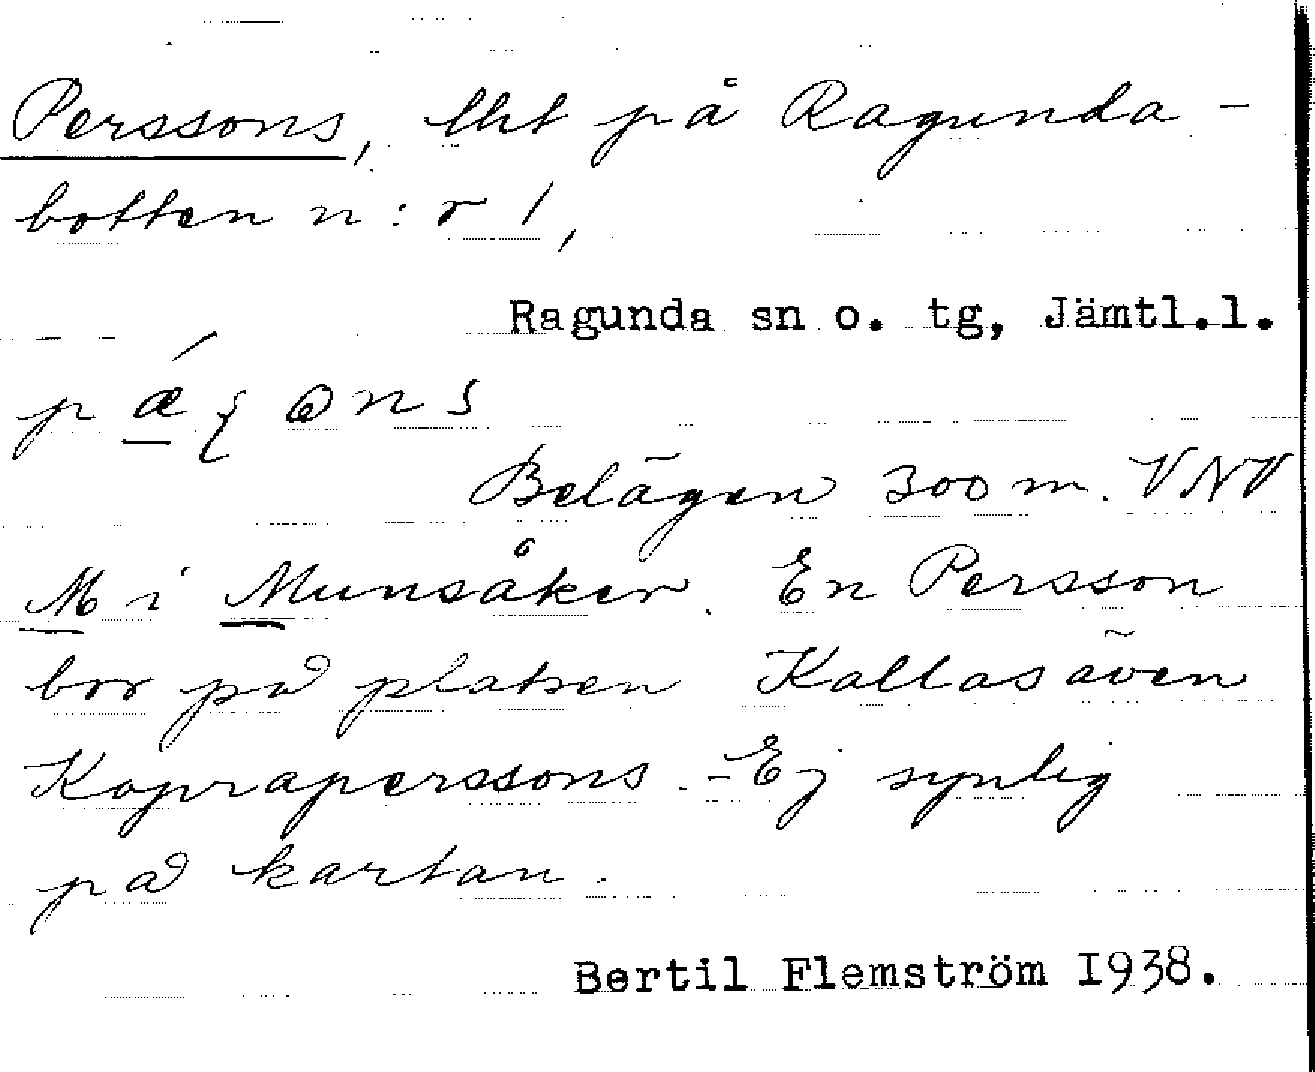 Perssons, lht på Ragunda-
botten n:r 1,
Ragunda sn o. tg, Jämtl.l.
Belägen 300 m. VNV
M i Munsåker. En Persson
bor på platsen Kallas även
Koprapersson̄s. - Ej synlig
på kartan.
Bertil Flemström 1938.